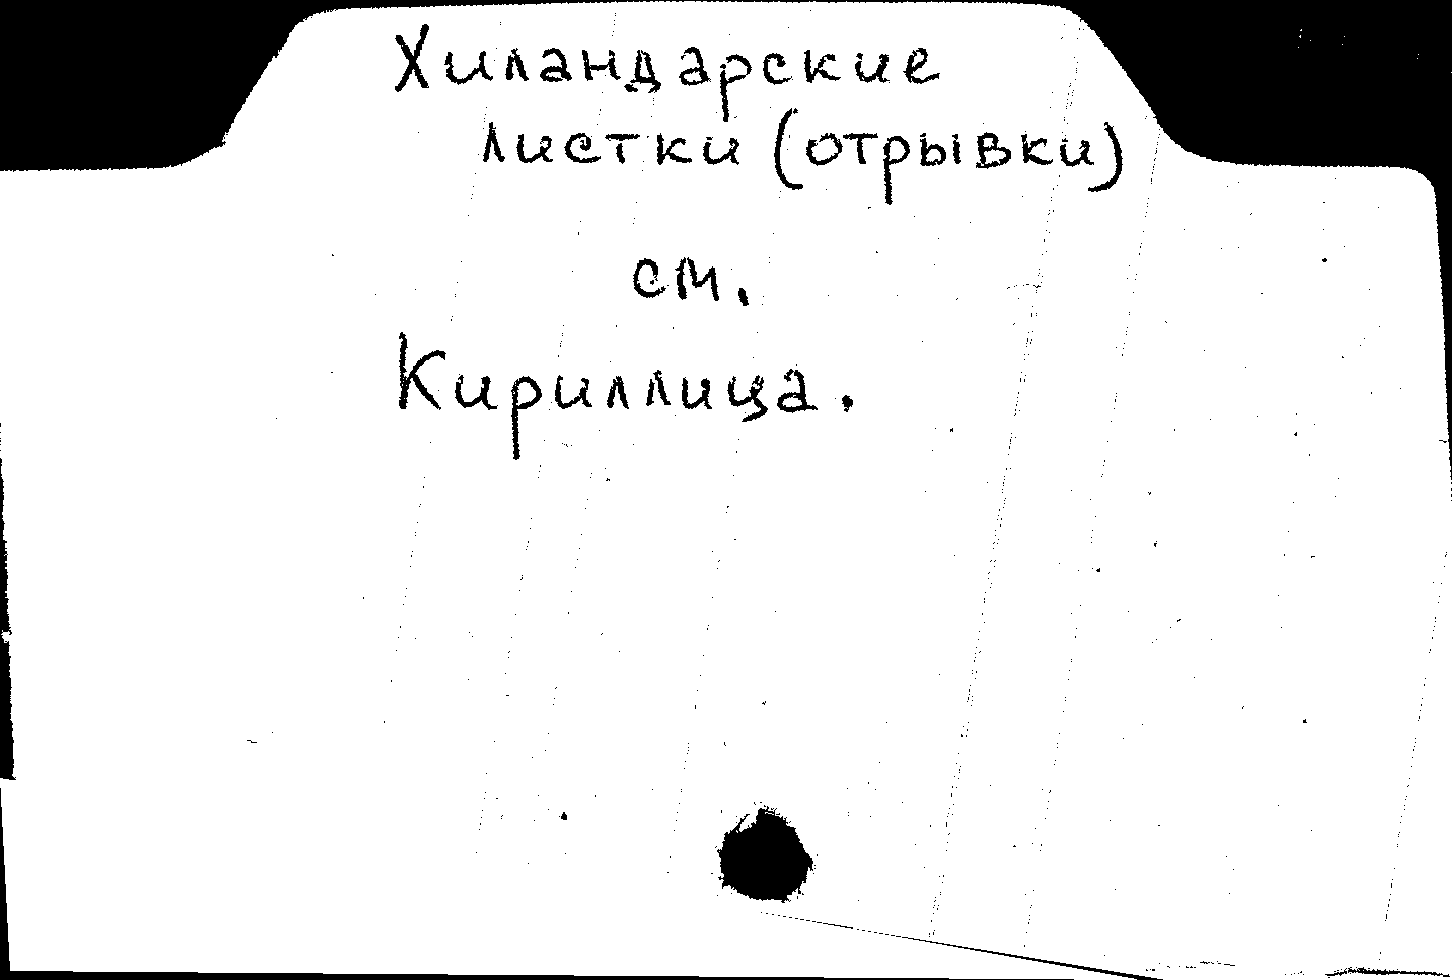 Хиландарские
листки (отрывки)
см.
Кириллица.